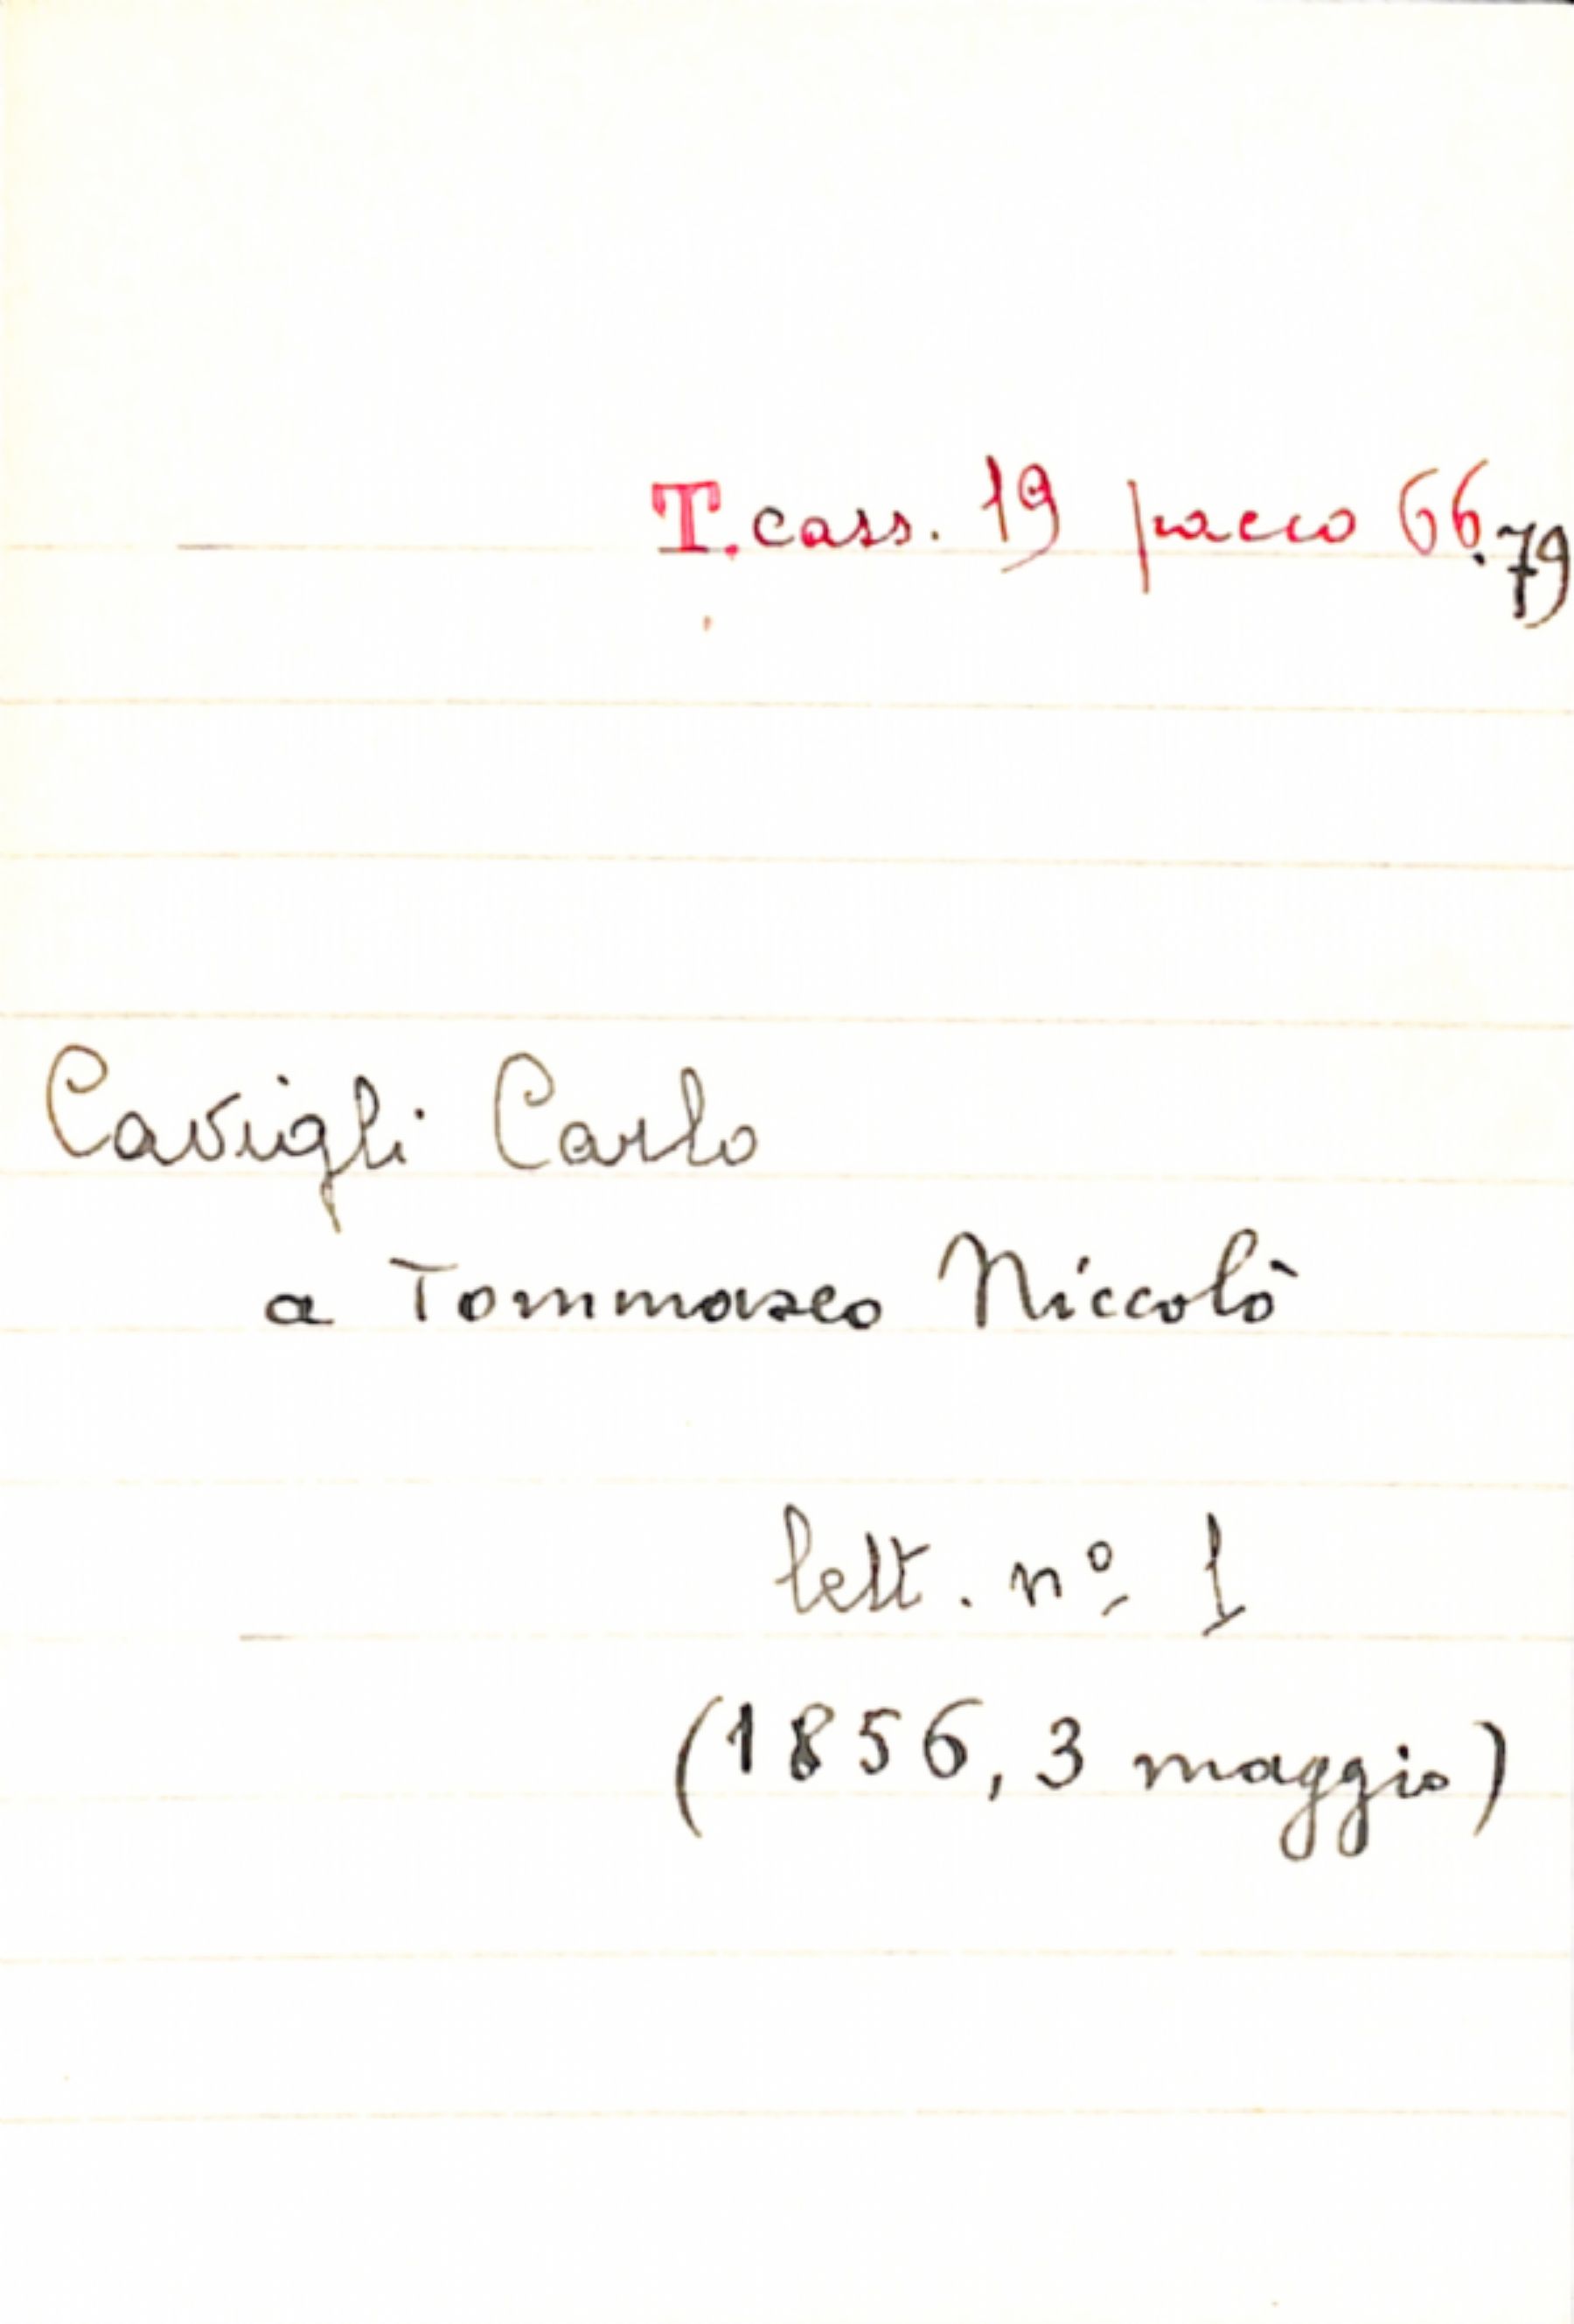 T. cass. 19 pacco 66.79
Cavigli Carlo
a Tommaseo Niccolò
lett. nº 1
(1856, 3 maggio)